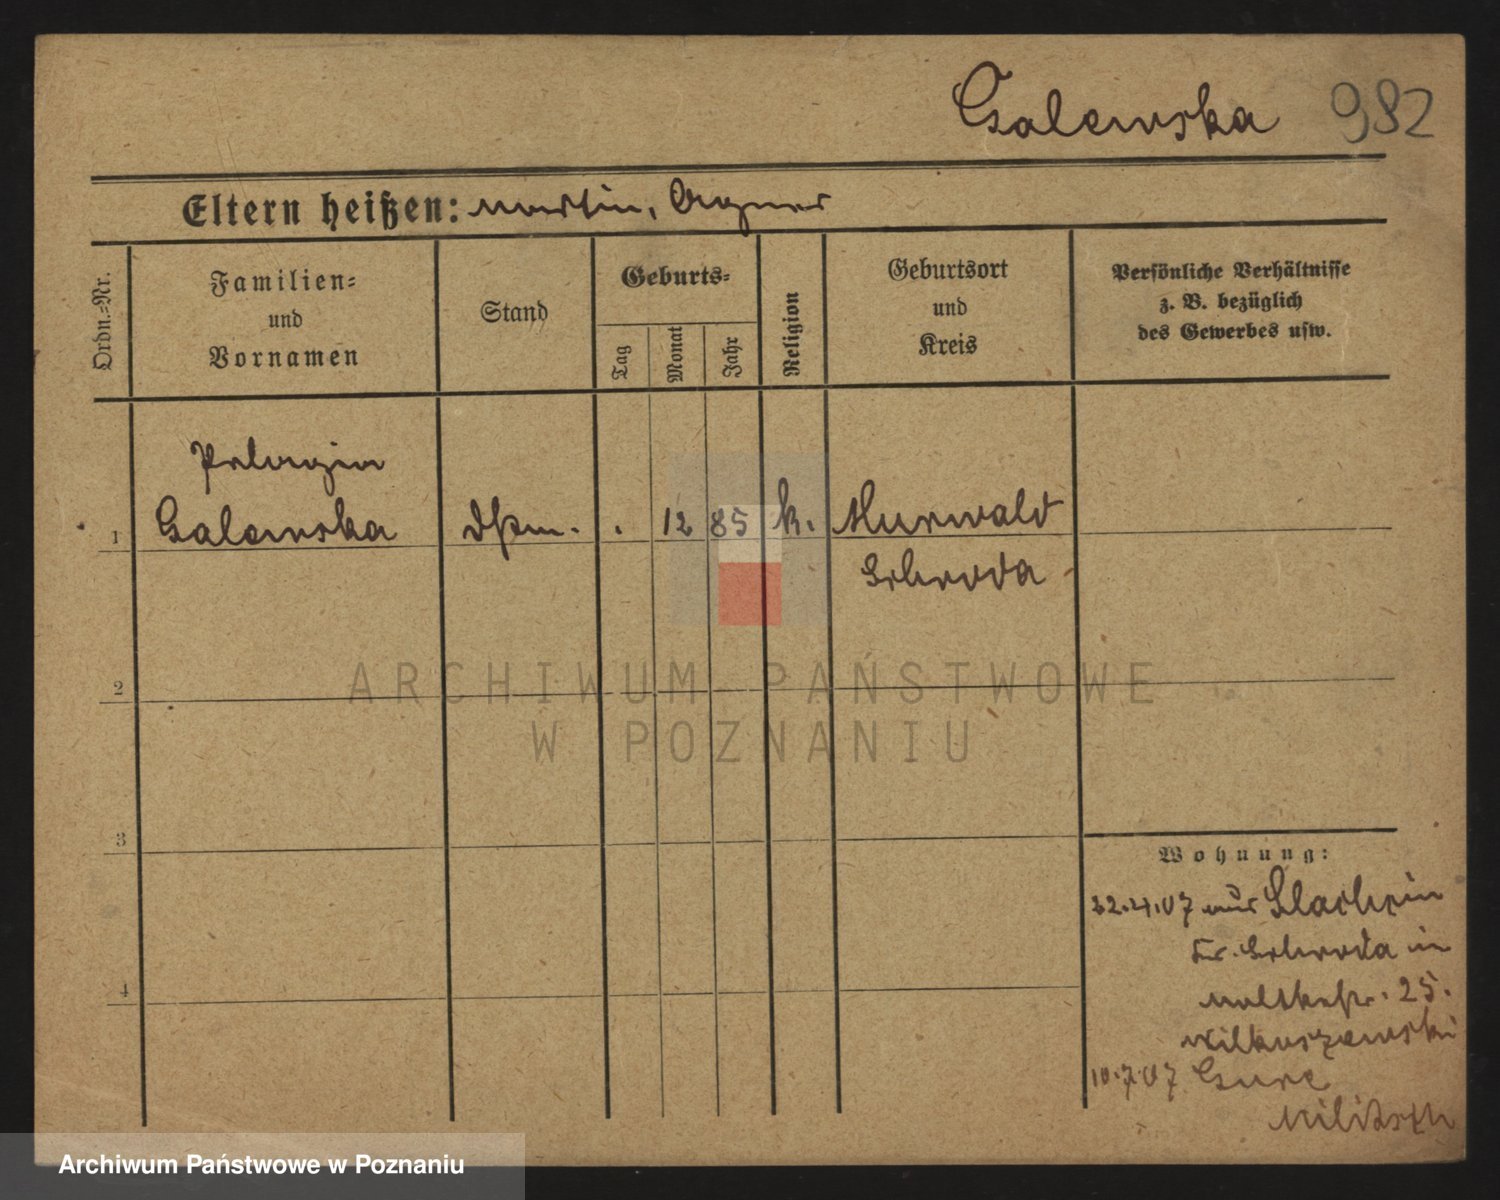 Galewska 982
Eltern heißen: Martin, Agnes
Ordn.=Nr.
Familien=
und
Vornamen
Stand
Geburts=
Tag
Monat
Jahr
Religion
Geburtsort
und
Kreis
Persönliche Verhältnisse
z. B. bezüglich
des Gewerbes usw.
Pelagia
1 Galewska . 12 85 k. Murwald
Schroda
2
3
4
Wohnung:
22.4.07 aus
Kr. Schroda in
Moltkestr. 25.
10.7.07
Militsch
ARCHIWUM PAŃSTWOWE
W POZNANIU
Archiwum Państwowe w Poznaniu